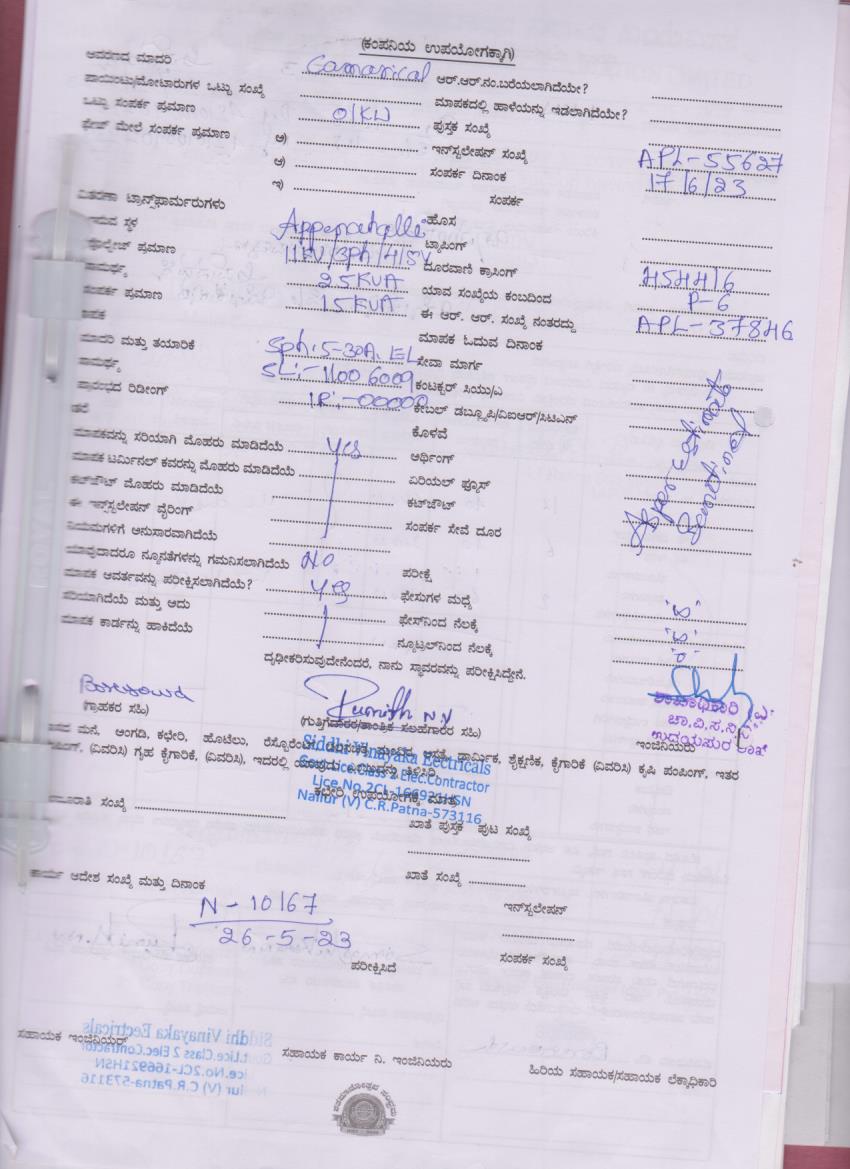 (ಕಂಪನಿಯ ಉಪಯೋಗಕ್ಕಾಗಿ)
ಆವರಣದ ಮಾದರಿ Comarical ಆರ್.ಆರ್.ನಂ.ಬರೆಯಲಾಗಿದೆಯೇ?
ಪಾಯಿಂಟು/ಮೋಟಾರುಗಳ ಒಟ್ಟು ಸಂಖ್ಯೆ ಮಾಪಕದಲ್ಲಿ ಹಾಳೆಯನ್ನು ಇಡಲಾಗಿದೆಯೇ?
ಒಟ್ಟು ಸಂಪರ್ಕ ಪ್ರಮಾಣ 01KW ಪುಸ್ತಕ ಸಂಖ್ಯೆ
ಫೇಜ್ ಮೇಲೆ ಸಂಪರ್ಕ ಪ್ರಮಾಣ ಅ) ಇನ್‌ಸ್ಟಲೇಷನ್ ಸಂಖ್ಯೆ APL-55627
ಆ) ಸಂಪರ್ಕ ದಿನಾಂಕ 17/6/23
ಇ) ಸಂಪರ್ಕ
ವಿತರಣಾ ಟ್ರಾನ್ಸ್‌ಫಾರ್ಮರುಗಳು
ಇರುವ ಸ್ಥಳ Appenahalli ಹೊಸ
ವೋಲ್ಟೇಜ್ ಪ್ರಮಾಣ 11KV/3ph/415V ಟ್ಯಾಪಿಂಗ್
ಸಾಮರ್ಥ್ಯ 25KVA ದೂರವಾಣಿ ಕ್ರಾಸಿಂಗ್
ಸಂಪರ್ಕ ಪ್ರಮಾಣ 15KVA ಯಾವ ಸಂಖ್ಯೆಯ ಕಂಬದಿಂದ P-6
ಮಾಪಕ ಈ ಆರ್. ಆರ್. ಸಂಖ್ಯೆ ನಂತರದ್ದು APL-37846
ಮಾದರಿ ಮತ್ತು ತಯಾರಿಕೆ Sph, 5-30A, EL ಮಾಪಕ ಓದುವ ದಿನಾಂಕ
ಸಾಮರ್ಥ್ಯ SL:-11006009 ಸೇವಾ ಮಾರ್ಗ
ಪ್ರಾರಂಭದ ರಿಡೀಂಗ್ I.R:-00000 ಕಂಟಕ್ಟರ್ ಸಿಯು/ಎ
ಕೇಬಲ್ ಡಬ್ಲ್ಯೂಪಿ/ವಿಐಆರ್/ಸಿಟಿಎಸ್
ತರೆ ಕೊಳವೆ
ಮಾಪಕವನ್ನು ಸರಿಯಾಗಿ ಮೊಹರು ಮಾಡಿದೆಯೆ yes ಅರ್ಥಿಂಗ್
ಮಾಪಕ ಟರ್ಮಿನಲ್ ಕವರನ್ನು ಮೊಹರು ಮಾಡಿದೆಯೆ ಏರಿಯಲ್ ಫ್ಯೂಸ್
ಕಟ್‌ಔಟ್ ಮೊಹರು ಮಾಡಿದೆಯೆ ಕಟ್‌ಔಟ್
ಈ ಇನ್‌ಸ್ಟಲೇಷನ್ ವೈರಿಂಗ್ ಸಂಪರ್ಕ ಸೇವೆ ದೂರ
ನಿಯಮಗಳಿಗೆ ಅನುಸಾರವಾಗಿದೆಯೆ
ಯಾವುದಾದರೂ ನ್ಯೂನತೆಗಳನ್ನು ಗಮನಿಸಲಾಗಿದೆಯೆ NO ಪರೀಕ್ಷೆ
ಮಾಪಕ ಆವರ್ತವನ್ನು ಪರೀಕ್ಷಿಸಲಾಗಿದೆಯೆ? yes ಫೇಸುಗಳ ಮಧ್ಯೆ
ಸರಿಯಾಗಿದೆಯೆ ಮತ್ತು ಅದು ಫೇಸ್‌ನಿಂದ ನೆಲಕ್ಕೆ
ಮಾಪಕ ಕಾರ್ಡನ್ನು ಹಾಕಿದೆಯೆ ನ್ಯೂಟ್ರಲ್‌ನಿಂದ ನೆಲಕ್ಕೆ
ದೃಢೀಕರಿಸುವುದೇನೆಂದರೆ, ನಾನು ಸ್ಥಾವರವನ್ನು ಪರೀಕ್ಷಿಸಿದ್ದೇನೆ.
Punith N.V
(ಗ್ರಾಹಕರ ಸಹಿ) (ಗುತ್ತಿಗೆದಾರರ/ತಾಂತ್ರಿಕ ಸಲಹೆಗಾರರ ಸಹಿ) ಇಂಜಿನಿಯರು
ಶಾಖಾಧಿಕಾರಿ
ಚಾ.ವಿ.ಸ.ನಿ.ನಿ
ಉದಯಪುರ ಶಾಖೆ
ಮನೆ, ಅಂಗಡಿ, ಕಛೇರಿ, ಹೋಟೆಲು, ಧಾರ್ಮಿಕ, ಶೈಕ್ಷಣಿಕ, ಕೈಗಾರಿಕೆ (ವಿವರಿಸಿ) ಕೃಷಿ ಪಂಪಿಂಗ್, ಇತರ
(ವಿವರಿಸಿ) ಗೃಹ ಕೈಗಾರಿಕೆ, (ವಿವರಿಸಿ), ಇದರಲ್ಲಿ
ಕಛೇರಿ ಉಪಯೋಗಕ್ಕೆ ಮಾತ್ರ
Siddhi Vinayaka Eectricals
Govt.Lice.Class 2 Elec.Contractor
Lice.No.2CL-166921HSN
Nallur (V) C.R.Patna-573116
ಸಂಖ್ಯೆ ಖಾತೆ ಪುಸ್ತಕ ಪುಟ ಸಂಖ್ಯೆ
ಕಾರ್ಯ ಆದೇಶ ಸಂಖ್ಯೆ ಮತ್ತು ದಿನಾಂಕ ಖಾತೆ ಸಂಖ್ಯೆ
N-10167 ಇನ್‌ಸ್ಟಲೇಷನ್
26-5-23
ಪರೀಕ್ಷಿಸಿದೆ ಸಂಪರ್ಕ ಸಂಖ್ಯೆ
ಸಹಾಯಕ ಇಂಜಿನಿಯರ್ ಸಹಾಯಕ ಕಾರ್ಯ ನಿ. ಇಂಜಿನಿಯರು ಹಿರಿಯ ಸಹಾಯಕ/ಸಹಾಯಕ ಲೆಕ್ಕಾಧಿಕಾರಿ